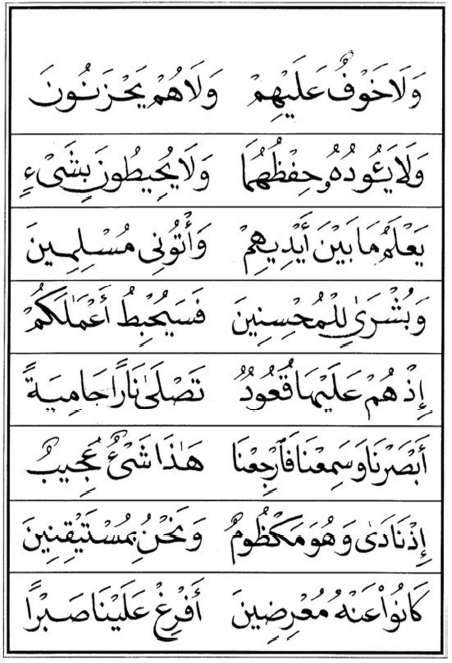 وَلَا خَوْفٌ عَلَيْهِمْ وَلَا هُمْ يَحْزَنُونَ
وَلَا يَـُٔودُهُۥ حِفْظُهُمَا وَلَا يُحِيطُونَ بِشَىْءٍ
يَعْلَمُ مَا بَيْنَ أَيْدِيهِمْ وَأْتُونِى مُسْلِمِينَ
وَبُشْرَىٰ لِلْمُحْسِنِينَ فَسَيُحْبِطُ أَعْمَٰلَكُمْ
إِذْ هُمْ عَلَيْهَا قُعُودٌ تَصْلَىٰ نَارًا حَامِيَةً
أَبْصَرْنَا وَسَمِعْنَا فَٱرْجِعْنَا هَٰذَا شَىْءٌ عُجِيبٌ
إِذْ نَادَىٰ وَهُوَ مَكْظُومٌ وَنَحْنُ بِمُسْتَيْقِنِينَ
كَانُوا۟ عَنْهُ مُعْرِضِينَ أَفْرِغْ عَلَيْنَا صَبْرًا